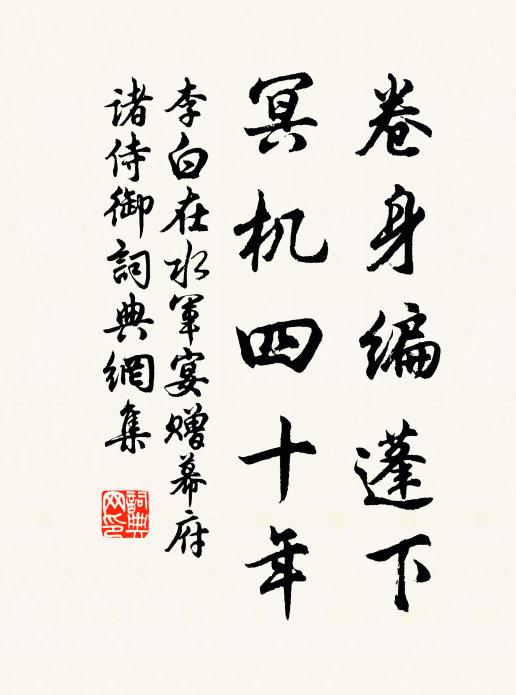 卷身编蓬下
冥机四十年
李白在水军宴赠幕府
诸侍御詞典網集
詞典
网印